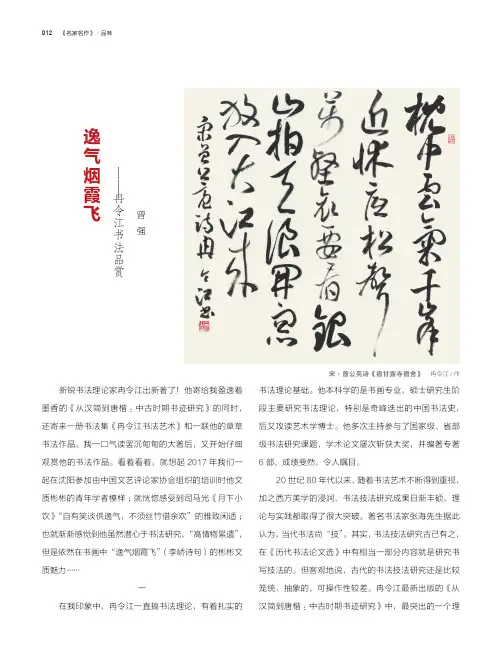 012 《名家名作》· 品味
逸气烟霞飞
——冉令江书法品赏
曾 强
枕中雲氣千峯
近床底松聲
萬壑哀要看銀
山拍天浪開窓
放入大江來
宋曾公亮詩冉令江書
宋·曾公亮诗《宿甘露寺僧舍》 冉令江/作
新锐书法理论家冉令江出新著了！他寄给我盈逸着
墨香的《从汉简到唐楷：中古时期书迹研究》的同时，
还寄来一册书法集《冉令江书法艺术》和一联他的章草
书法作品。我一口气读罢沉甸甸的大著后，又开始仔细
观赏他的书法作品。看着看着，就想起 2017 年我们一
起在沈阳参加由中国文艺评论家协会组织的培训时他文
质彬彬的青年学者模样；就恍惚感受到司马光《月下小
饮》“自有笑谈供逸气，不须丝竹借余欢”的雅致闲适；
也就渐渐感觉到他虽然潜心于书法研究，“高情物累遣”，
但是依然在书画中“逸气烟霞飞”（李峤诗句）的彬彬文
质魅力……
一
在我印象中，冉令江一直搞书法理论，有着扎实的
书法理论基础。他本科学的是书画专业，硕士研究生阶
段主要研究书法理论，特别是奇峰迭出的中国书法史，
后又攻读艺术学博士。他多次主持参与了国家级、省部
级书法研究课题，学术论文屡次斩获大奖，并编著专著
6 部，成绩斐然，令人瞩目。
20 世纪 80 年代以来，随着书法艺术不断得到重视，
加之西方美学的浸润，书法技法研究成果日渐丰硕，理
论与实践都取得了很大突破。著名书法家张海先生据此
认为，当代书法尚“技”。其实，书法技法研究古已有之，
在《历代书法论文选》中有相当一部分内容就是研究书
写技法的。但客观地说，古代的书法技法研究还是比较
笼统、抽象的，可操作性较差。冉令江最新出版的《从
汉简到唐楷：中古时期书迹研究》中，最突出的一个理